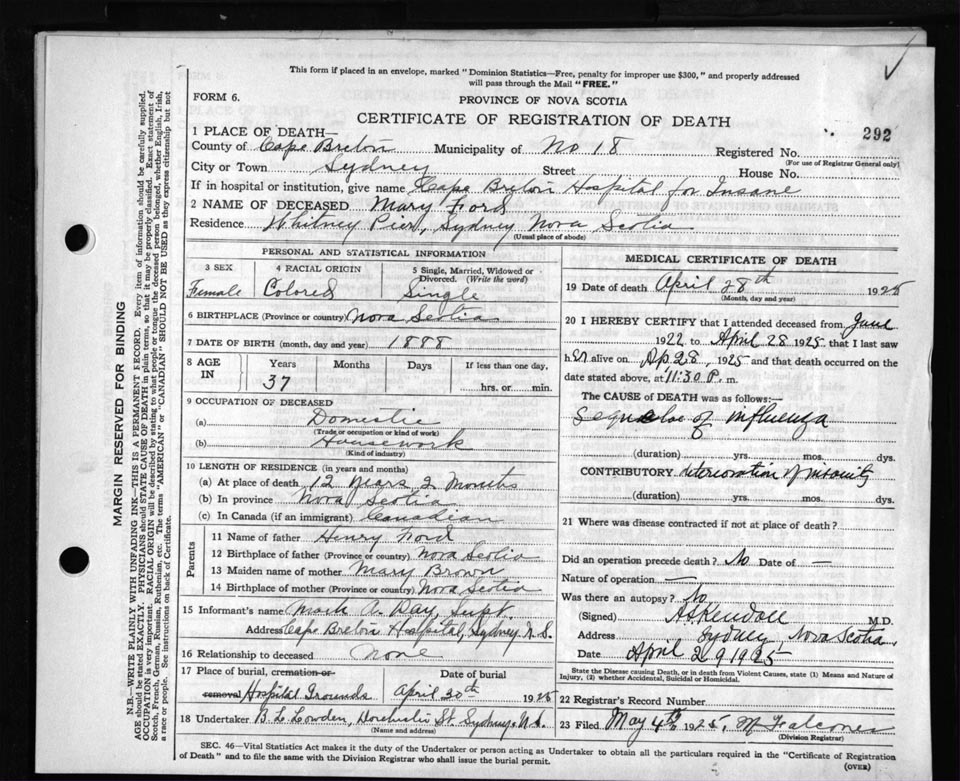 This form if placed in an envelope, marked "Dominion Statistics—Free, penalty for improper use $300," and properly addressed
will pass through the Mail "FREE."
FORM 6.
PROVINCE OF NOVA SCOTIA
CERTIFICATE OF REGISTRATION OF DEATH
292
1 PLACE OF DEATH—
County of Cape Breton Municipality of No 18 Registered No.
(For use of Registrar General only)
City or Town Sydney Street House No.
If in hospital or institution, give name Cape Breton Hospital for Insane
2 NAME OF DECEASED Mary Ford
Residence Whitney Pier, Sydney Nova Scotia
(Usual place of abode)
PERSONAL AND STATISTICAL INFORMATION
3 SEX
Female
4 RACIAL ORIGIN
Colored
5 Single, Married, Widowed or
Divorced. (Write the word)
Single
6 BIRTHPLACE (Province or country) Nova Scotia
7 DATE OF BIRTH (month, day and year) 1888
8 AGE
IN
Years Months Days If less than one day,
37 hrs. or min.
9 OCCUPATION OF DECEASED
(a) Domestic
(Trade or occupation or kind of work)
(b) Housework
(Kind of industry)
10 LENGTH OF RESIDENCE (in years and months)
(a) At place of death 12 Years 2 Months
(b) In province Nova Scotia
(c) In Canada (if an immigrant) Canadian
Parents
11 Name of father Henry Ford
12 Birthplace of father (Province or country) Nova Scotia
13 Maiden name of mother Mary Brown
14 Birthplace of mother (Province or country) Nova Scotia
15 Informant's name Mark A. Day, Supt
Address Cape Breton Hospital, Sydney N.S.
16 Relationship to deceased None
17 Place of burial, cremation or Date of burial
removal Hospital Grounds April 30th 1925
18 Undertaker B. L. Lowden, Dorchester St. Sydney, N.S.
(Name and address)
MEDICAL CERTIFICATE OF DEATH
19 Date of death April 28th 1925
(Month, day and year)
20 I HEREBY CERTIFY that I attended deceased from June
1922 to April 28 1925 that I last saw
her alive on Ap 28, 1925 and that death occurred on the
date stated above, at 11:30 P. m.
The CAUSE of DEATH was as follows:—
Sequelae of influenza
(duration) yrs. mos. dys.
CONTRIBUTORY deterioration of insanity
(duration) yrs. mos. dys.
21 Where was disease contracted if not at place of death?
Did an operation precede death? No Date of —
Nature of operation —
Was there an autopsy? No
(Signed) A S Kendall M.D.
Address Sydney, Nova Scotia
Date April 29 1925
State the Disease causing Death, or in death from Violent Causes, state (1) Means and Nature of
Injury, (2) whether Accidental, Suicidal or Homicidal.
22 Registrar's Record Number
23 Filed May 4th 1925, Falconer
(Division Registrar)
SEC. 46—Vital Statistics Act makes it the duty of the Undertaker or person acting as Undertaker to obtain all the particulars required in the "Certificate of Registration
of Death" and to file the same with the Division Registrar who shall issue the burial permit.
(OVER)
MARGIN RESERVED FOR BINDING
N.B.—WRITE PLAINLY WITH UNFADING INK—THIS IS A PERMANENT RECORD. Every item of information should be carefully supplied.
AGE should be stated EXACTLY. PHYSICIANS should STATE CAUSE OF DEATH in plain terms, so that it may be properly classified. Exact statement of
OCCUPATION is very important. RACIAL ORIGIN will be described by stating to what people or tongue the deceased person belonged, whether English, Irish,
Scotch, French, German, Russian, Ruthenian, etc. The terms "AMERICAN" or "CANADIAN" SHOULD NOT BE USED as they express citizenship but not
a race or people. See instructions on back of Certificate.